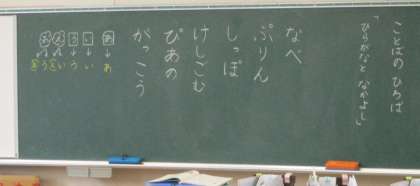 ことばの ひろば
「ひらがなと なかよし」
なべ
ぷりん
しっぽ
けしごむ
ぴあの
がっこう